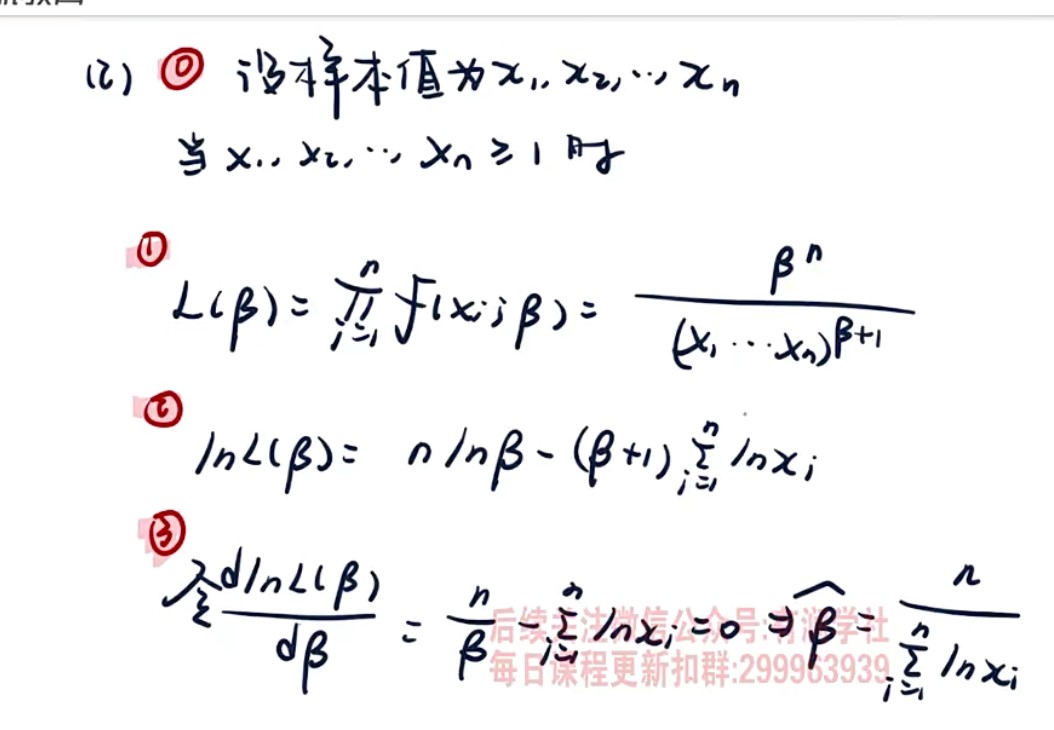 (2) ⓪ 设样本值为x₁, x₂, ⋯, xₙ
当 x₁, x₂, ⋯, xₙ ≥ 1 时
①
L(β) = ∏ᵢ₌₁ⁿ f(xᵢ; β) = βⁿ / (x₁ ⋯ xₙ)^(β+1)
②
lnL(β) = n lnβ - (β+1) ∑ᵢ₌₁ⁿ ln xᵢ
③
令 dlnL(β)/dβ = n/β - ∑ᵢ₌₁ⁿ ln xᵢ = 0 ⇒ β̂ = n / ∑ᵢ₌₁ⁿ ln xᵢ
后续关注微信公众号:有润学社
每日课程更新扣群:299963939